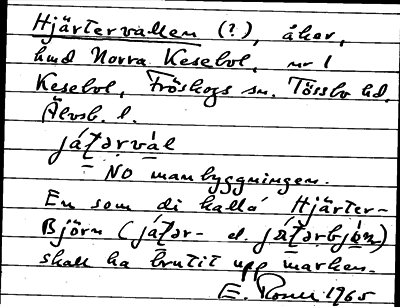 Hjärtervallen (?), åker,
hmd Norra Kesebol, nr 1
Kesebol, Fröskogs sn. Tössbo hd.
Älvsb. l.
já̱ṭərvàl
NO manbyggningen.
En som di kalla' Hjärter-
Björn (já̱ṭər- el. já̱ṭərbjò̱ṇ)
skall ha brutit upp marken.
E. 1965